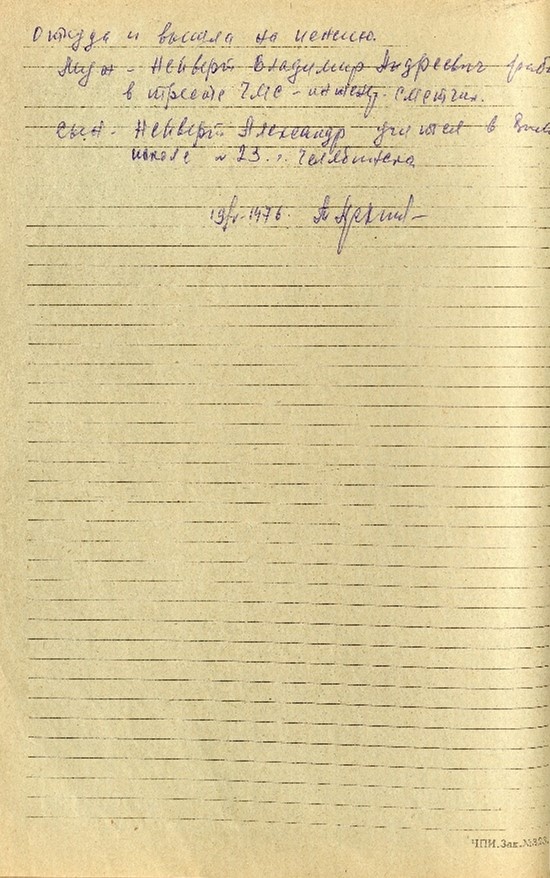 Откуда и вышла на пенсию.
Муж - Нейверт Владимир Андреевич рабо
в тресте ЧМС - инженер сметчик.
сын - Нейверт Александр учится в
школе № 23 г. Челябинска
1976
ЧПИ. Зак. №